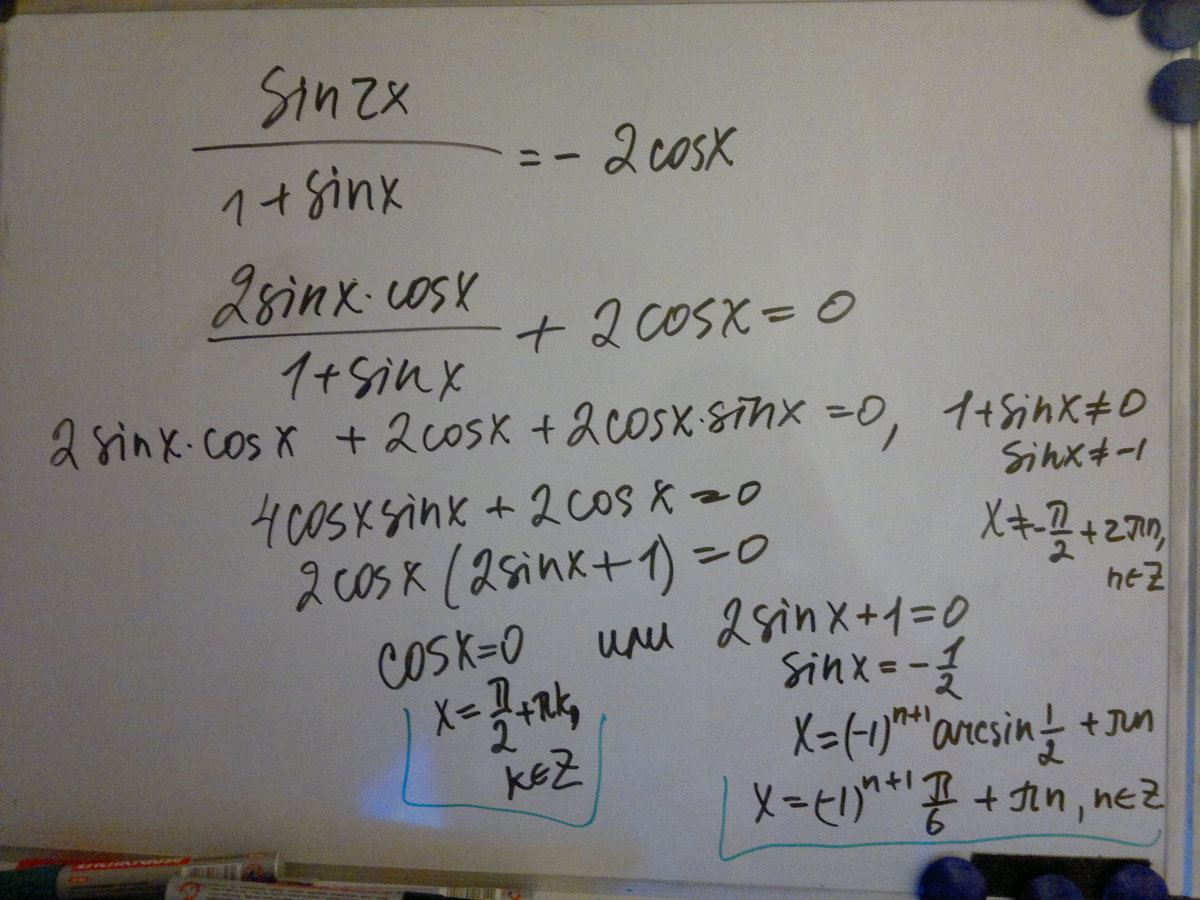 sin2x
1+sinx
=- 2cosx
2sinx·cosx
1+sinx
+ 2cosx=0
2sinx·cosx + 2cosx+2cosx·sinx=0, 1+sinx≠0
sinx≠-1
4cosxsinx+2cosx=0
x≠-π/2+2πn,
n∈Z
2cosx(2sinx+1)=0
cosx=0 или 2sinx+1=0
sinx=-1/2
x=π/2+πk,
k∈Z
x=(-1)ⁿ⁺¹arcsin1/2+πn
x=(-1)ⁿ⁺¹π/6+πn, n∈Z